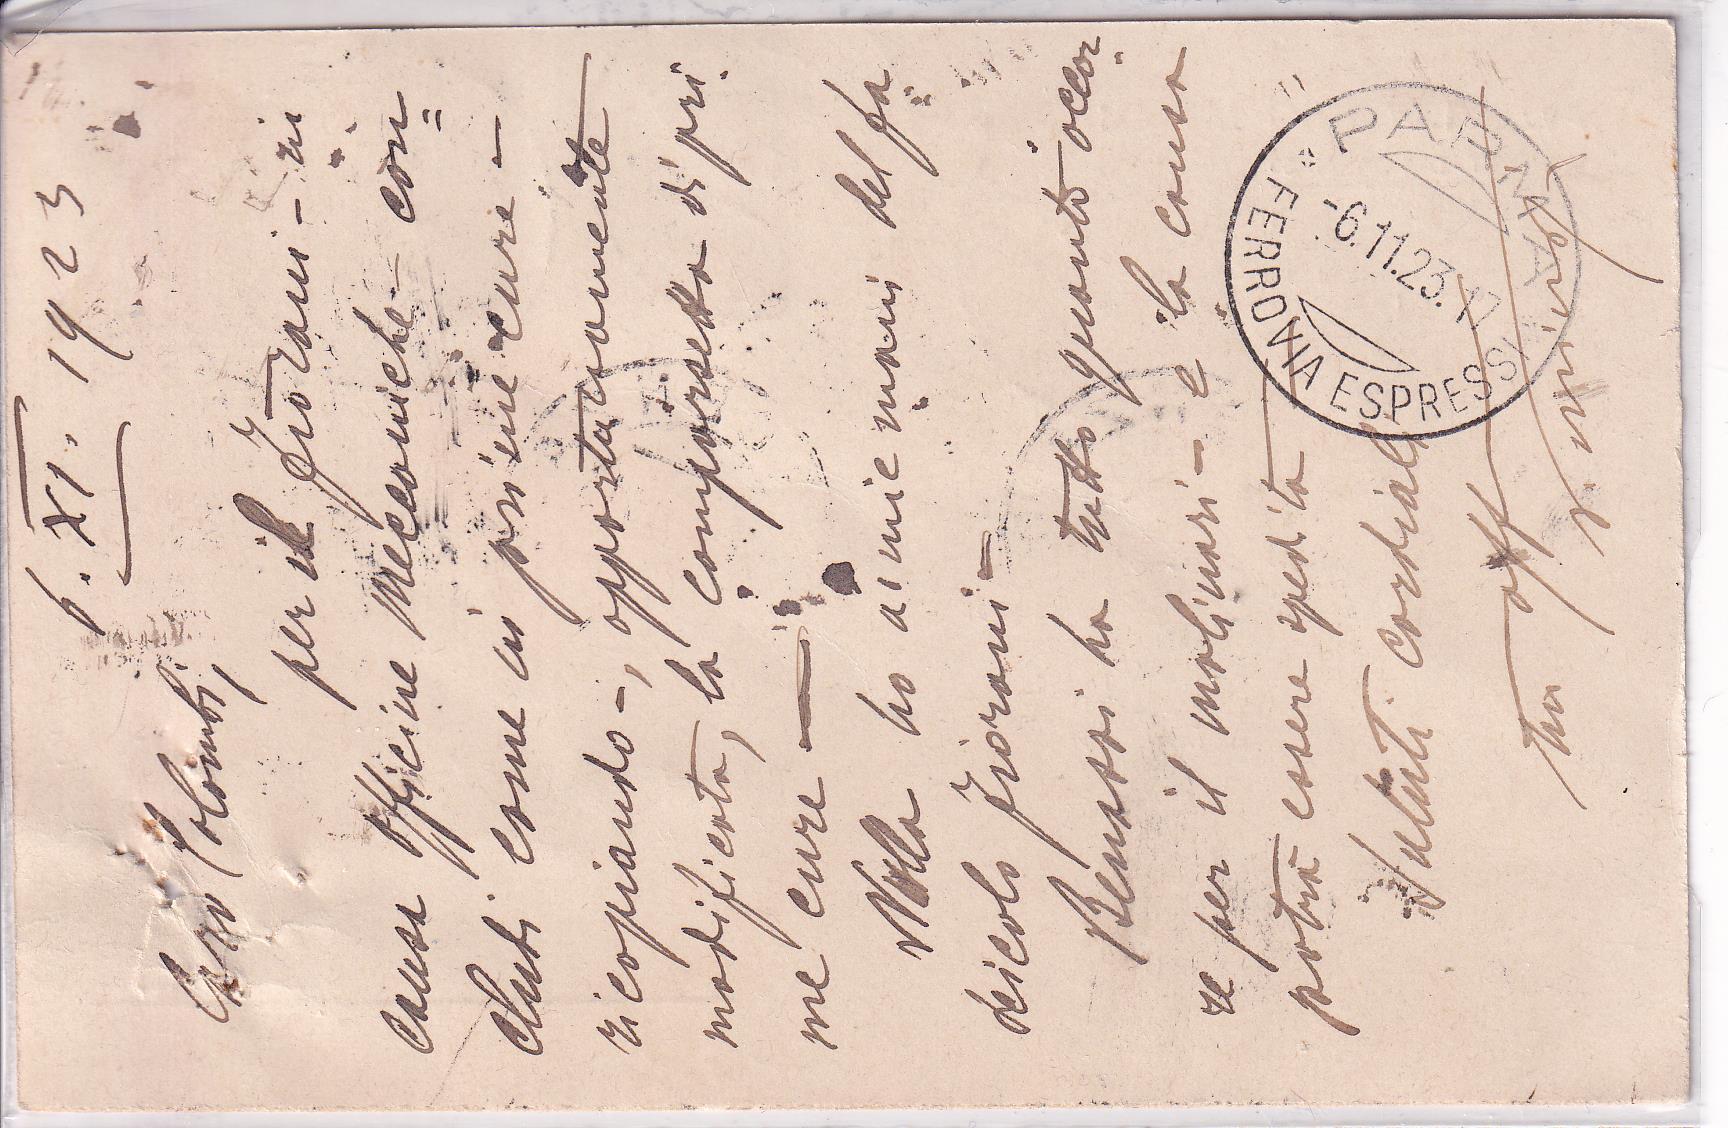 6. XI. 1923
Caro Colombi,
per il Fiorani - ri
causa officine Meccaniche - con=
cludi come in prime cure -
ricopiando -, opportunamente
modificata, la comparsetta di pri.
me cure —
Nulla ho a mie mani del fa=
scicolo Fiorani =
Benassi ha tutto quanto occor.
re per il Molinari - e la causa
potrà essere spedita
Saluti cordiali
tuo aff
PARMA
FERROVIA ESPRESSI
-6.11.23.17